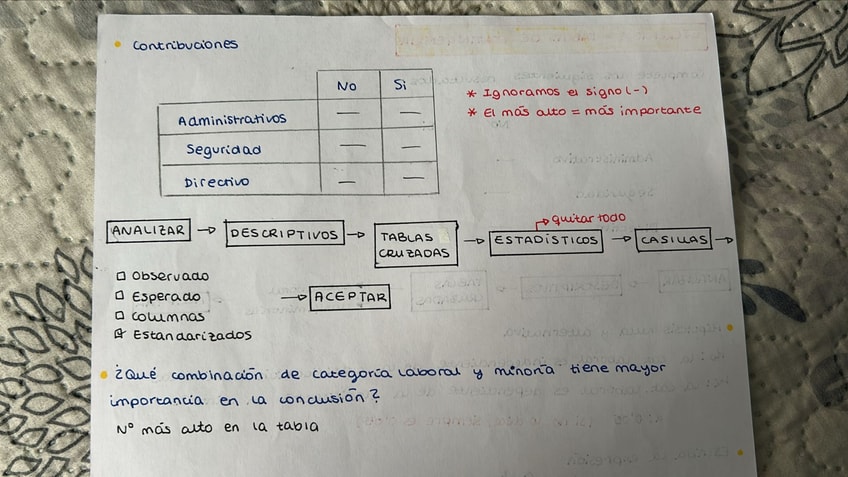 • Contribuciones
No Si
* Ignoramos el signo (-)
* El más alto = más importante
Administrativos — —
Seguridad — —
Directivo — —
→ quitar todo
ANALIZAR → DESCRIPTIVOS → TABLAS CRUZADAS → ESTADÍSTICOS → CASILLAS →
□ Observado
□ Esperado → ACEPTAR
□ Columnas
☑ Estandarizados
• ¿Qué combinación de categoría laboral y minoría tiene mayor
importancia en la conclusión?
Nº más alto en la tabla